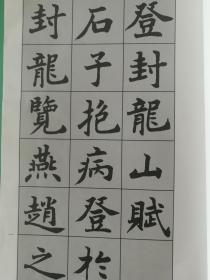 登封龍山賦
石子抱病登於
封龍覽燕趙之